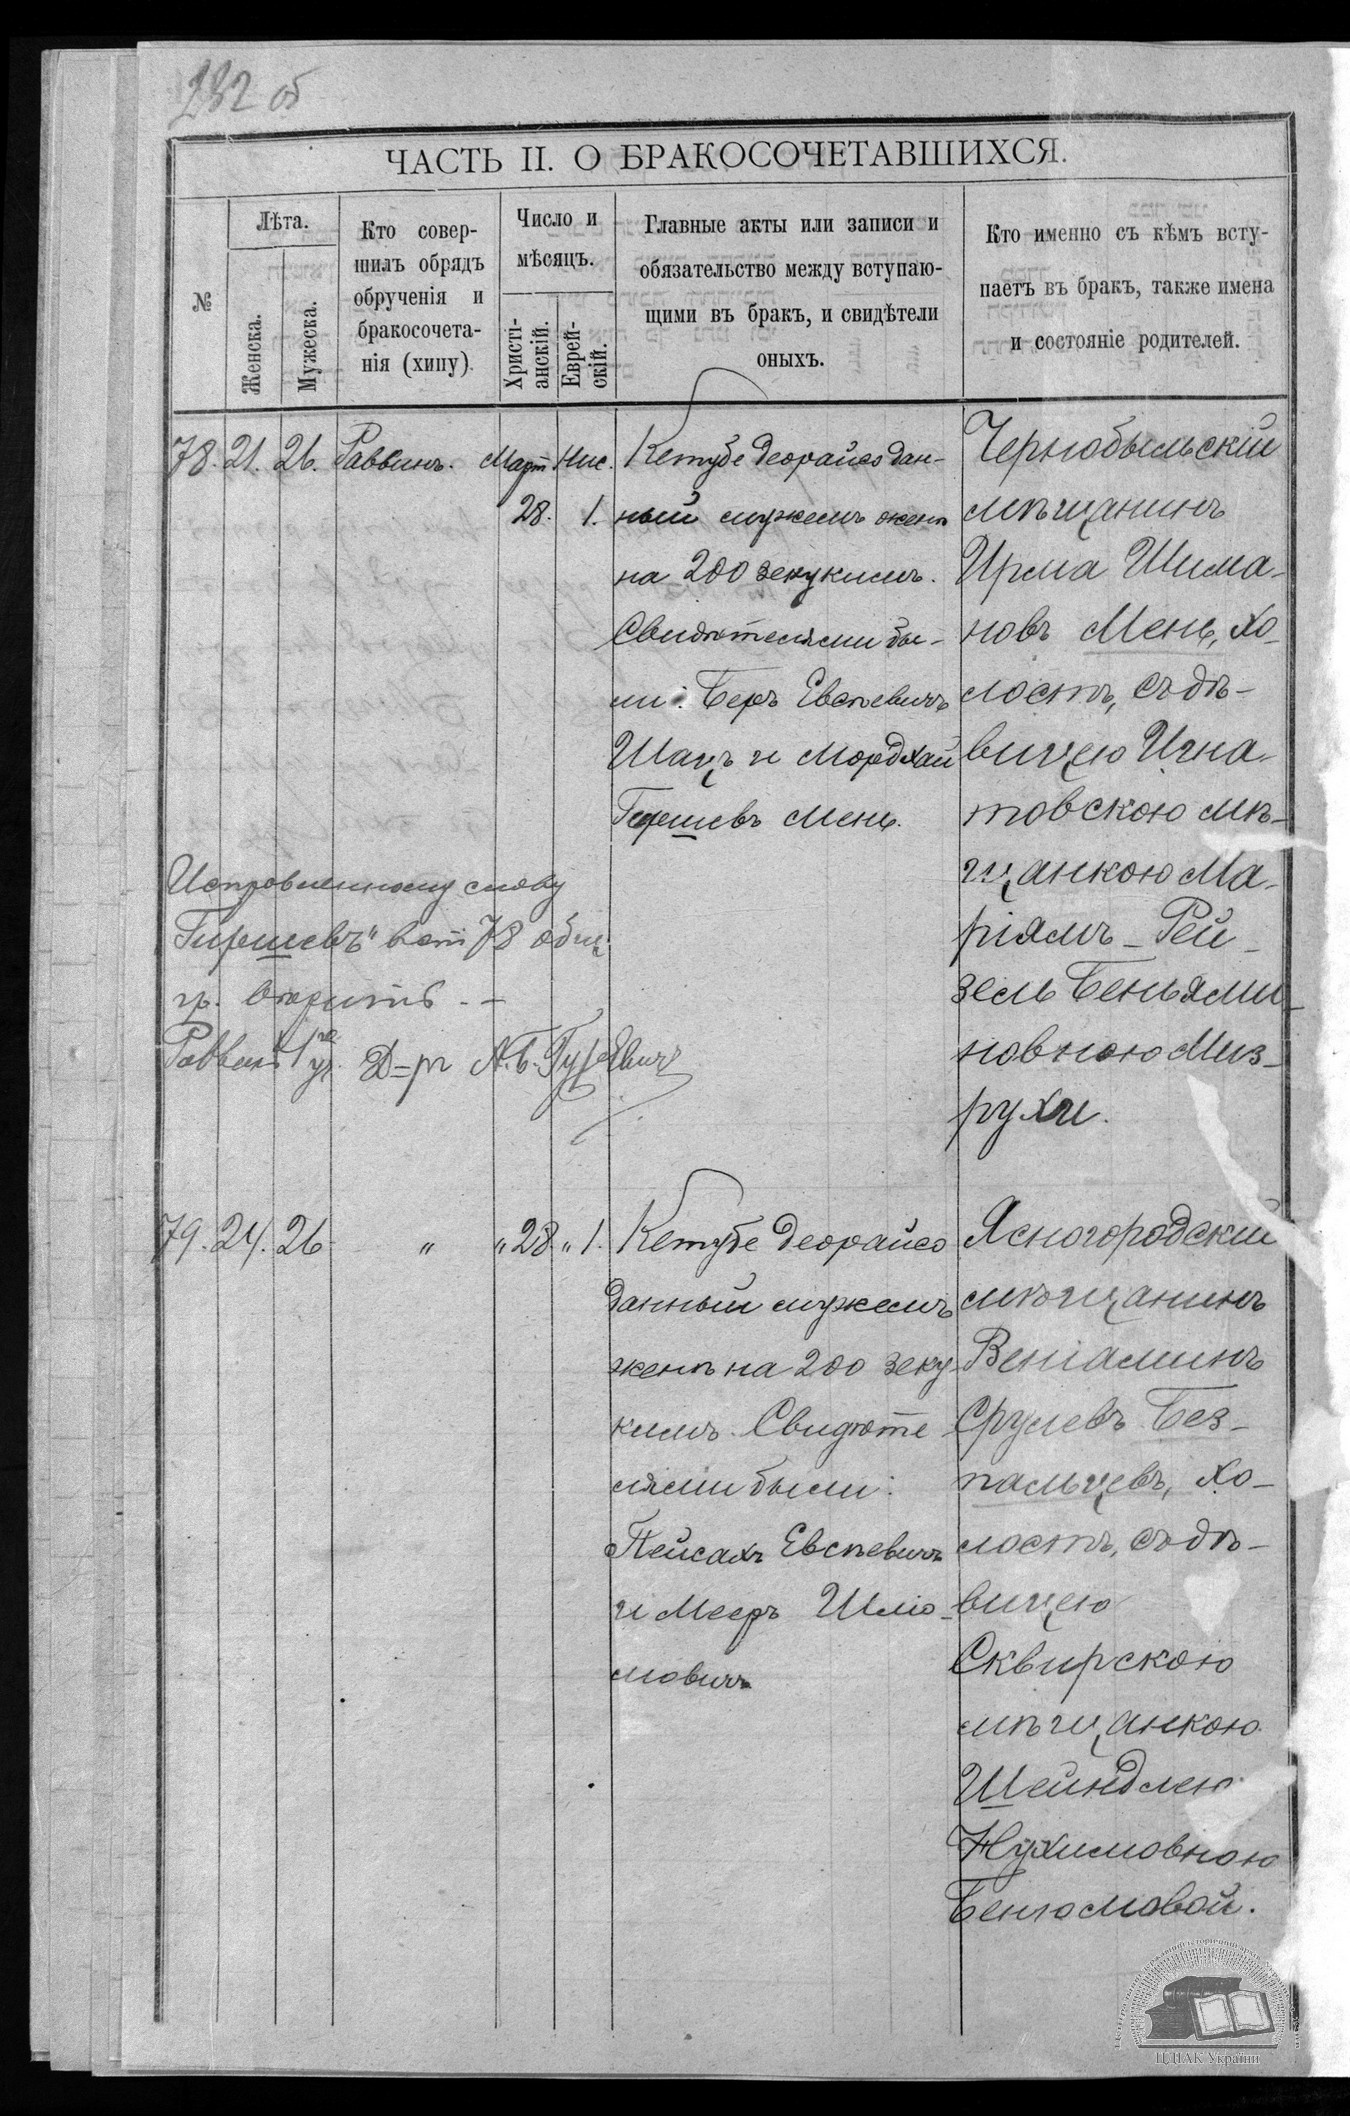 232 об
ЧАСТЬ II. О БРАКОСОЧЕТАВШИХСЯ.
№
Лѣта.
Женска.
Мужеска.
Кто совер-
шилъ обрядъ
обрученія и
бракосочета-
нія (хипу)
Число и
мѣсяцъ.
Христі-
анскій.
Еврей-
скій.
Главные акты или записи и
обязательство между вступаю-
щими въ бракъ, и свидѣтели
оныхъ.
Кто именно съ кѣмъ всту-
паетъ въ бракъ, также имена
и состояніе родителей.
78. 21. 26. Раввинъ. Март Нис.
28. 1.
Кетубе деорайсо дан-
ный мужемъ женѣ
на 200 зекукимъ.
Свидѣтелями бы-
ли: Беръ Евсѣевичъ
Шацъ и Мордхай
Гиршевъ Менц.
Чернобыльскій
мѣщанинъ
Ирма Шима-
новъ Менц, хо-
лостъ, съ дѣ-
вицею Игна-
товскою мѣ-
щанкою Ма-
ріямъ-Рей-
зель Беньями-
новною Миз-
рухи.
Исправленному слову
Гиршевъ" в ст 78 общ.
гр. вѣрить. —
Раввинъ 1го уч. Д-ръ А. Б. Гуревичъ
79. 24. 26 " " 28 " 1.
Кетубе деорайсо
данный мужемъ
женѣ на 200 зеку-
кимъ. Свидѣте
лями были:
Пейсахъ Евсѣевичъ
и Мееръ Шлио-
мовичъ
Ясногородскій
мѣщанинъ
Веніаминъ
Срулевъ Без-
пальцевъ, хо-
лостъ, съ дѣ-
вицею
Сквирскою
мѣщанкою
Шейндлею
Нухимовною
Бенюмовой.
ЦДІАК України